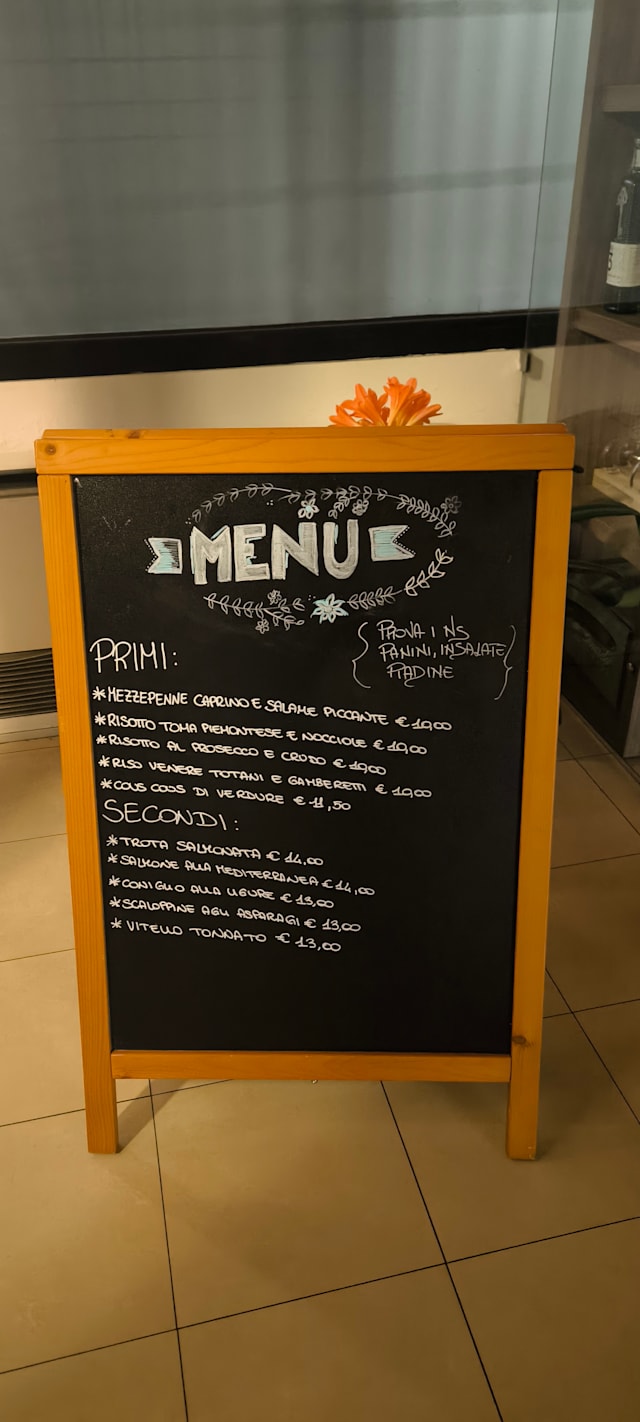 MENU
PROVA I NS
PANINI, INSALATE
PIADINE
PRIMI:
*MEZZEPENNE CAPRINO E SALAME PICCANTE € 10,00
*RISOTTO TOMA PIEMONTESE E NOCCIOLE € 10,00
*RISOTTO AL PROSECCO E CRUDO € 10,00
*RISO VENERE TOTANI E GAMBERETTI € 10,00
*COUS COUS DI VERDURE € 11,50
SECONDI:
*TROTA SALMONATA € 14,00
*SALMONE ALLA MEDITERRANEA € 14,00
*CONIGLIO ALLA LIGURE € 13,00
*SCALOPPINE AGLI ASPARAGI € 13,00
*VITELLO TONNATO € 13,00